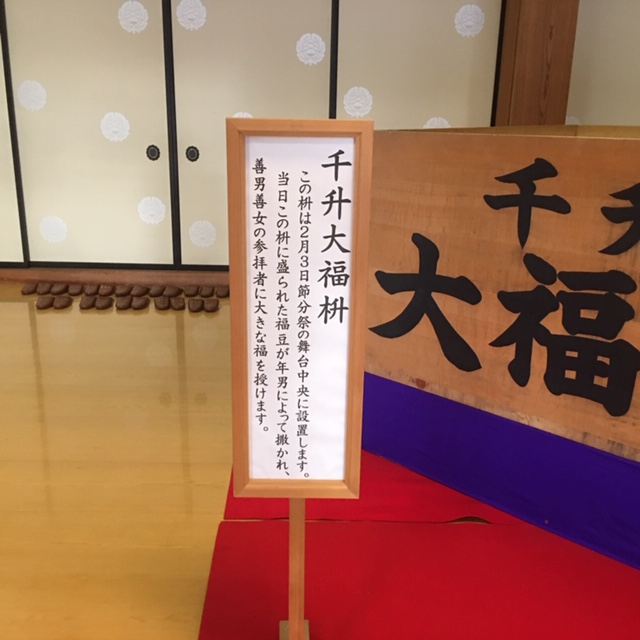 千升大福枡
この枡は2月3日節分祭の舞台中央に設置します。
当日この枡に盛られた福豆が年男によって撒かれ、
善男善女の参拝者に大きな福を授けます。
千升
大福